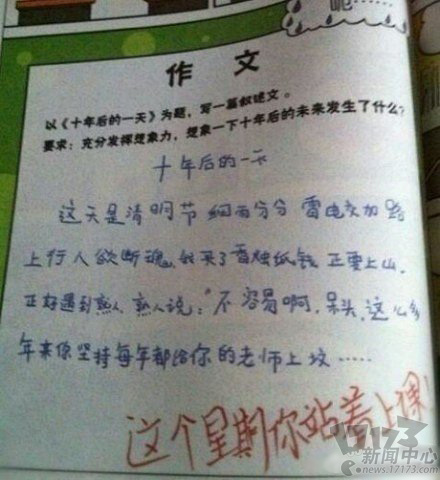 呃……
作 文
以《十年后的一天》为题，写一篇叙述文。
要求：充分发挥想象力，想象一下十年后的未来发生了什么？
十年后的一天
这天是清明节 细雨分分 雷电交加 路
上行人欲断魂，我买了香烛纸钱 正要上山，
正好遇到熟人，熟人说："不容易啊，呆头，这么多
年来你坚持每年都给你的老师上坟……
这个星期你站着上课！
17173
新闻中心
news.17173.com